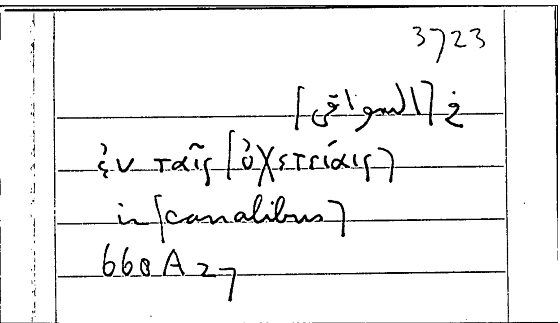 3723
في ⌈السواقي⌉
ἐν ταῖς ⌈ὀχετείαις⌉
in ⌈canalibus⌉
668A27